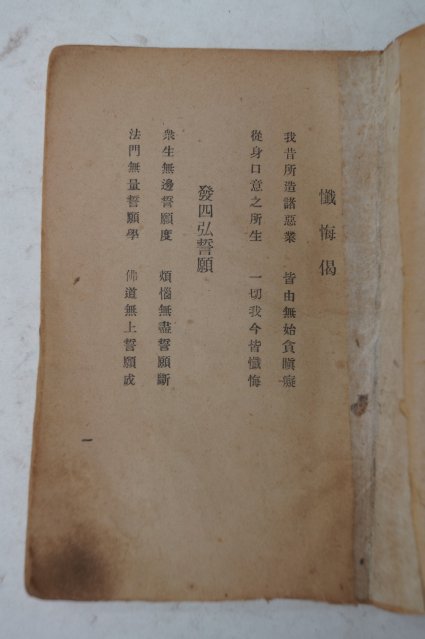 懺悔偈
我昔所造諸惡業 皆由無始貪瞋癡
從身口意之所生 一切我今皆懺悔
發四弘誓願
衆生無邊誓願度 煩惱無盡誓願斷
法門無量誓願學 佛道無上誓願成
一